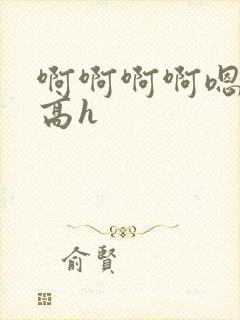 啊啊啊啊嗯
高h
俞賢